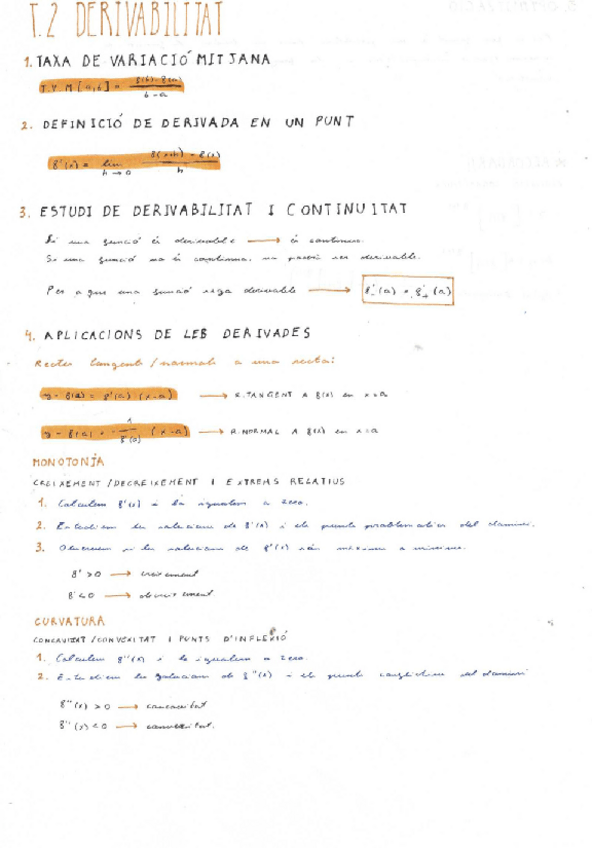 T.2 DERIVABILITAT
1. TAXA DE VARIACIÓ MITJANA
T.V.M [a,b] = f(b) - f(a) / b - a
2. DEFINICIÓ DE DERIVADA EN UN PUNT
f'(x) = lim h→0 f(x+h) - f(x) / h
3. ESTUDI DE DERIVABILITAT I CONTINUITAT
Si una funció és derivable → és contínua.
Si una funció no és contínua, no podrà ser derivable.
Per a que una funció siga derivable → f'-(a) = f'+(a)
4. APLICACIONS DE LES DERIVADES
Rectes tangent/normals a una recta:
y - f(a) = f'(a) · (x-a) → R.TANGENT A f(x) en x=a
y - f(a) = - 1/f'(a) · (x-a) → R.NORMAL A f(x) en x=a
MONOTONÍA
CREIXEMENT/DECREIXEMENT I EXTREMS RELATIUS
1. Calculem f'(x) i la igualem a zero.
2. Estudiem les solucions de f'(x) i els punts problemàtics del domini.
3. Observem si les solucions de f'(x) són màxims o mínims.
f' > 0 → creixement
f' < 0 → decreixement
CURVATURA
CONCAVITAT/CONVEXITAT I PUNTS D'INFLEXIÓ
1. Calculem f''(x) i la igualem a zero.
2. Estudiem les solucions de f''(x) i els punts conflictius del domini
f''(x) > 0 → concavitat
f''(x) < 0 → convexitat.